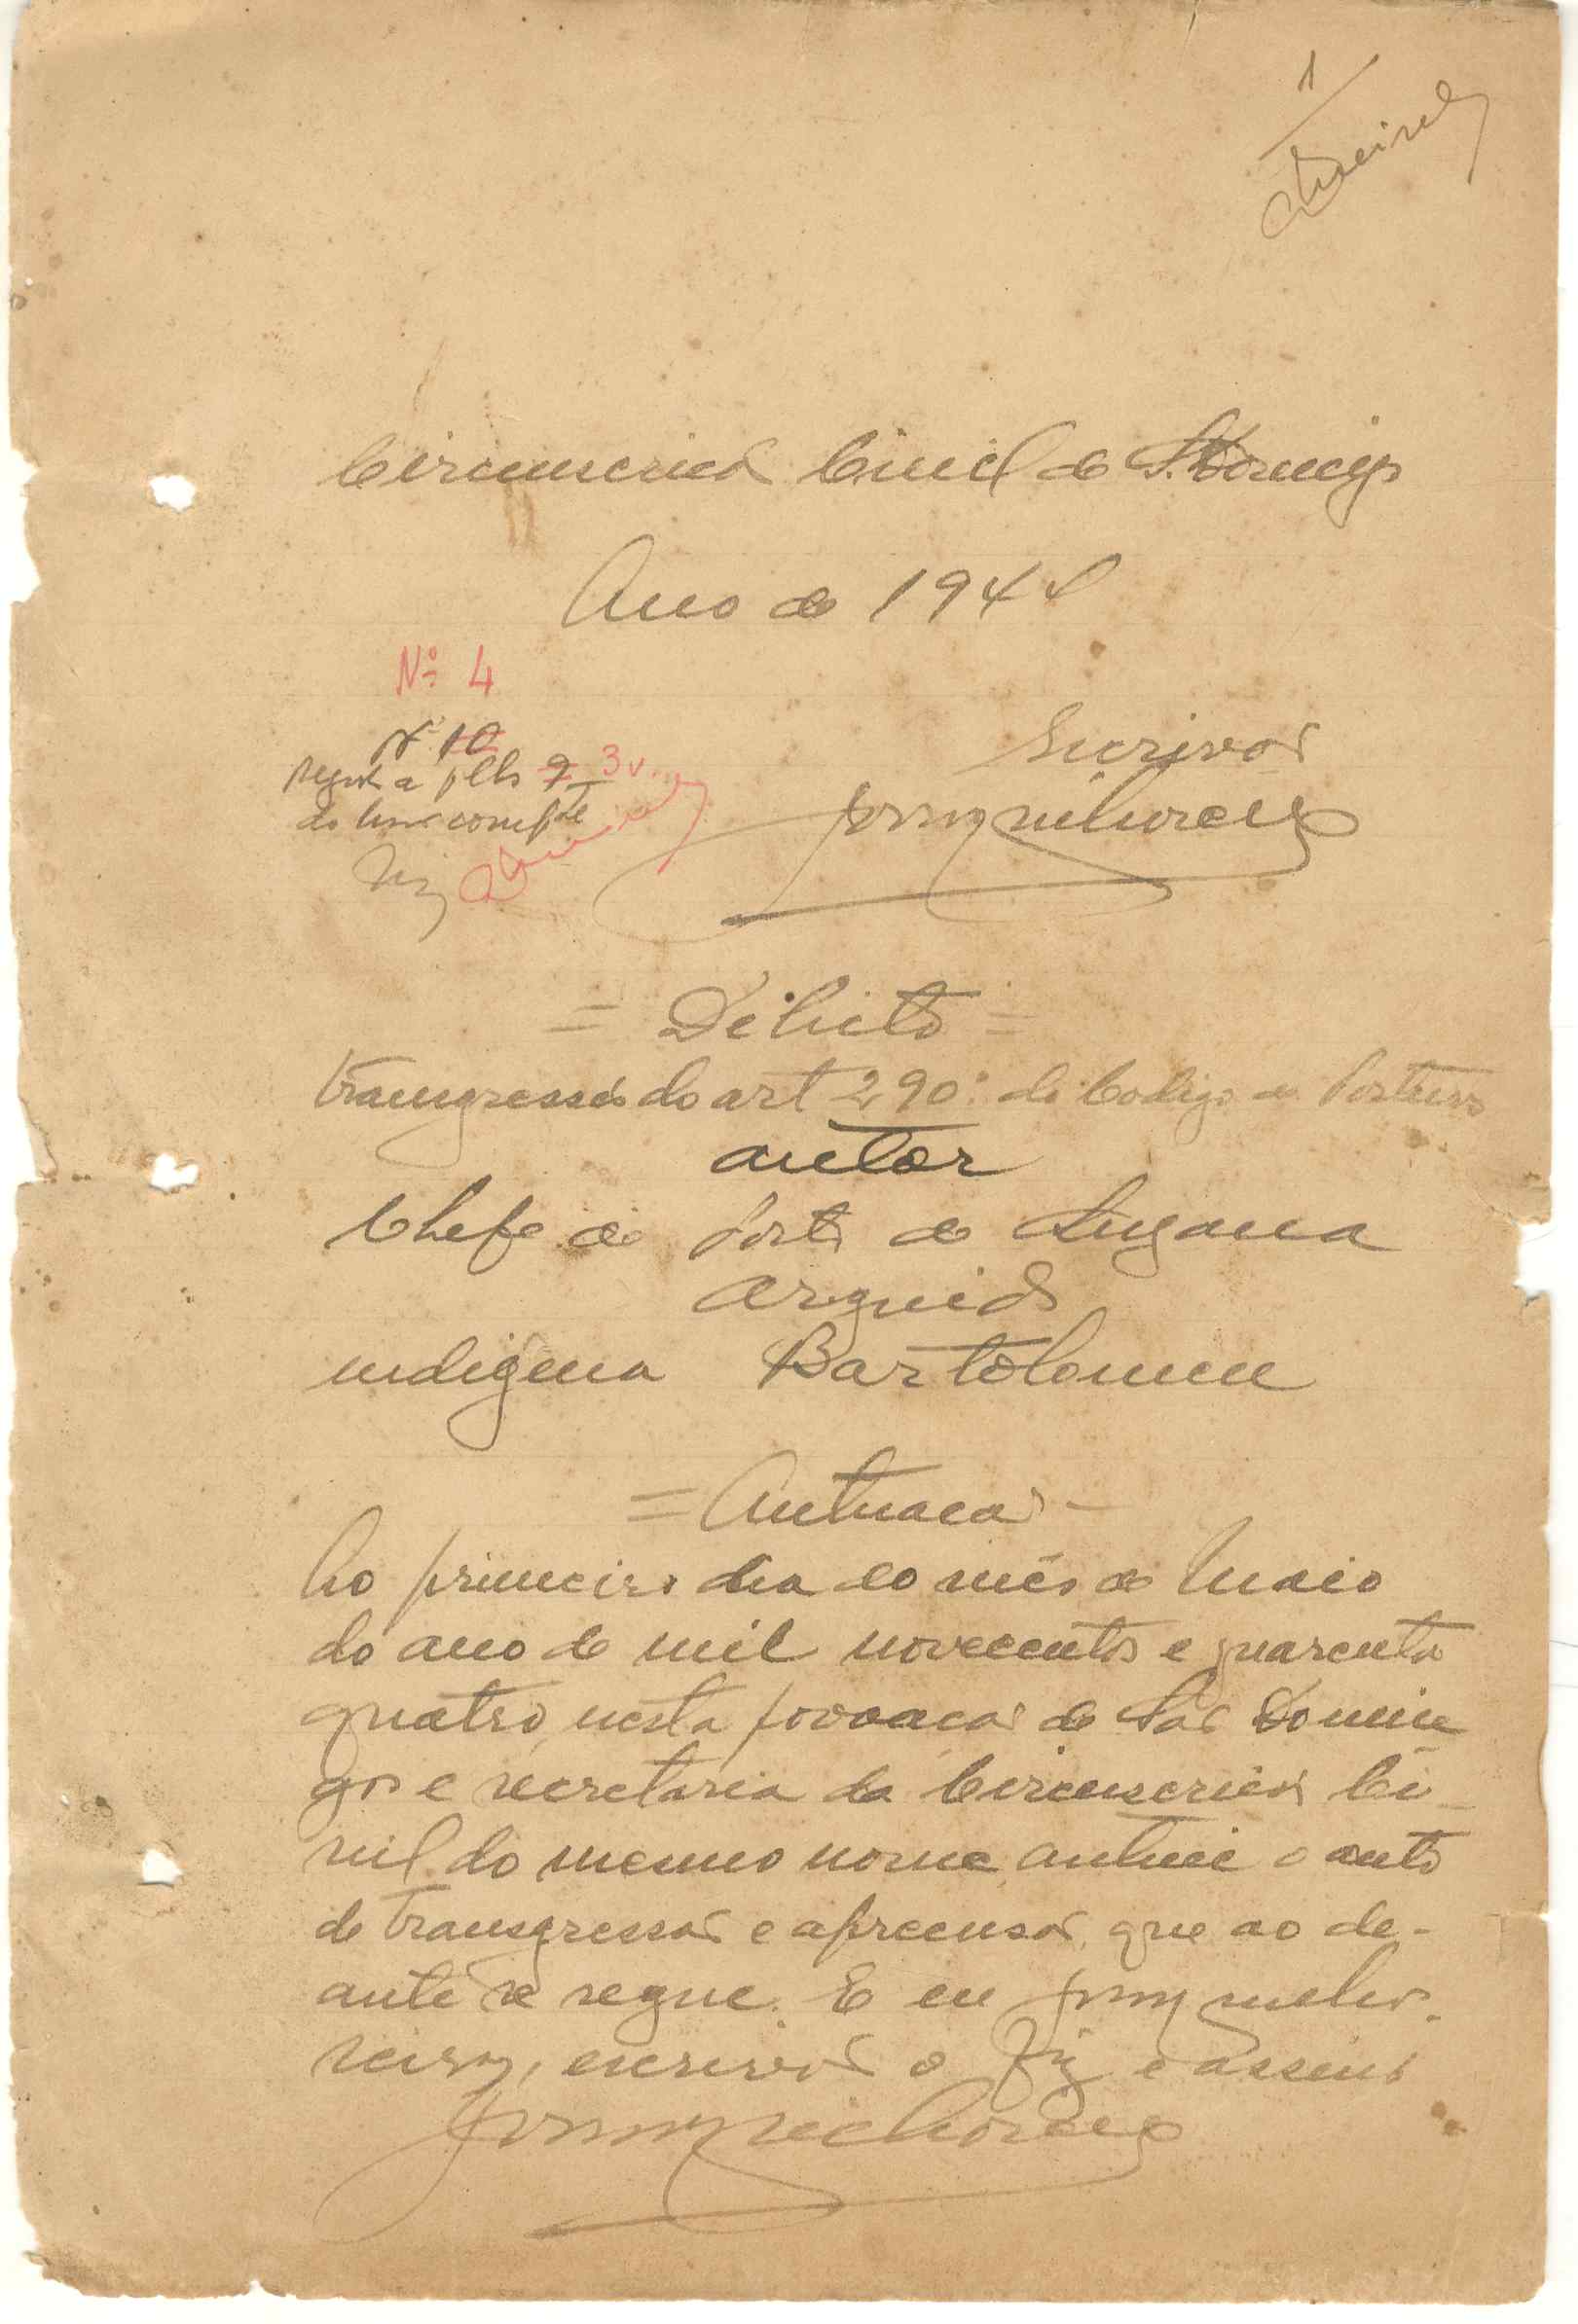 1
Circunscrição Civil de S. Domingos
Ano de 1944
Nº 4
Nº 10
Regd a flhs 9 3v.
do livro compte
Escrivão
= Delicto =
transgressão do art 290º do Codigo de Posturas
autor
Chefe do Posto de Suzana
arguido
indigena Bartolomeu
= Autuacao =
Ao primeiro dia do mês de Maio
do ano de mil novecentos e quarenta
quatro, nesta povoacão de São Domin
gos e secretaria da Circunscricão Ci-
vil do mesmo nome, autuei o auto
de transgressão e apreensão, que ao de-
ante se segue. E eu
escrivão o fiz e assino